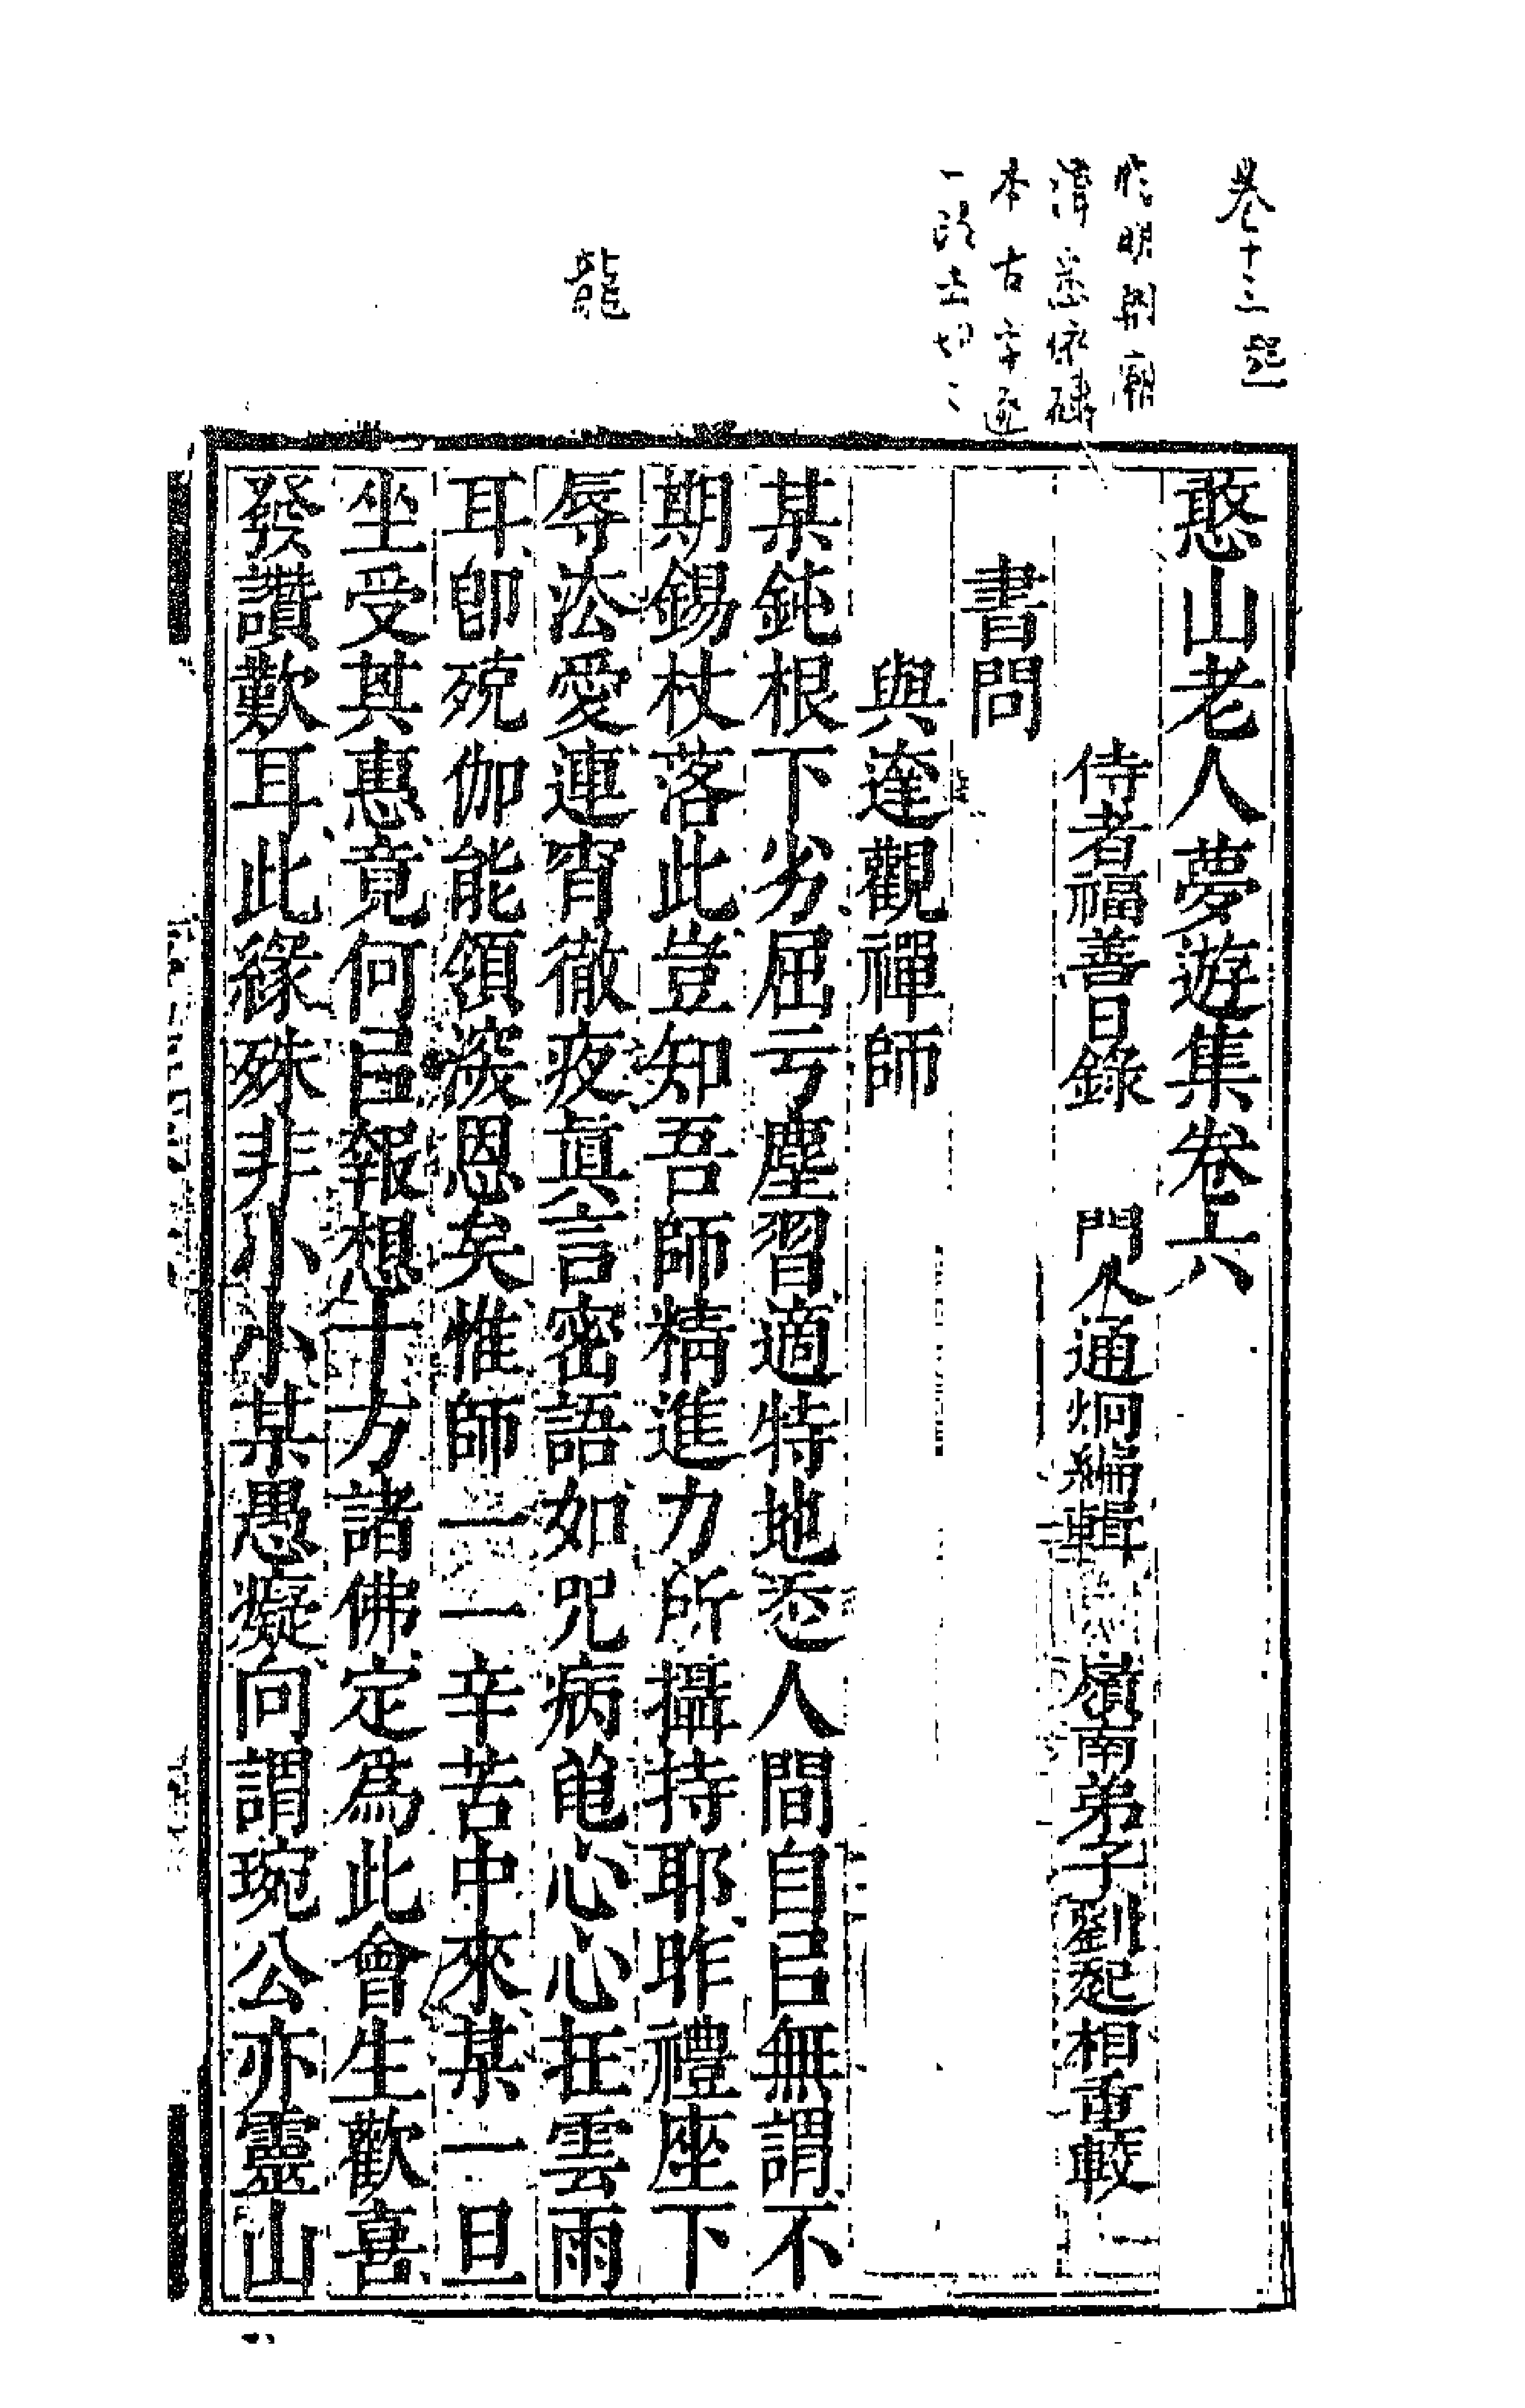 卷十三
本古字
龍
憨山老人夢遊集卷六
侍者福善日錄 門人通炯編輯 嶺南弟子劉起相重較
書問
與達觀禪師
某鈍根下劣屈亏塵習適特地悉人間自己無謂不
期錫杖落此豈知吾師精進力所攝持耶昨禮座下
辱㳒愛連宵徹夜眞言密語如咒病龍心心在雲雨
耳卽殑伽能領湥恩矣惟師一一辛苦中來某一旦
坐受其惠竟何㠯報想十方諸佛定爲此會生歡喜
發讚歎耳此緣殊非小小某愚癡向謂琬公亦靈山